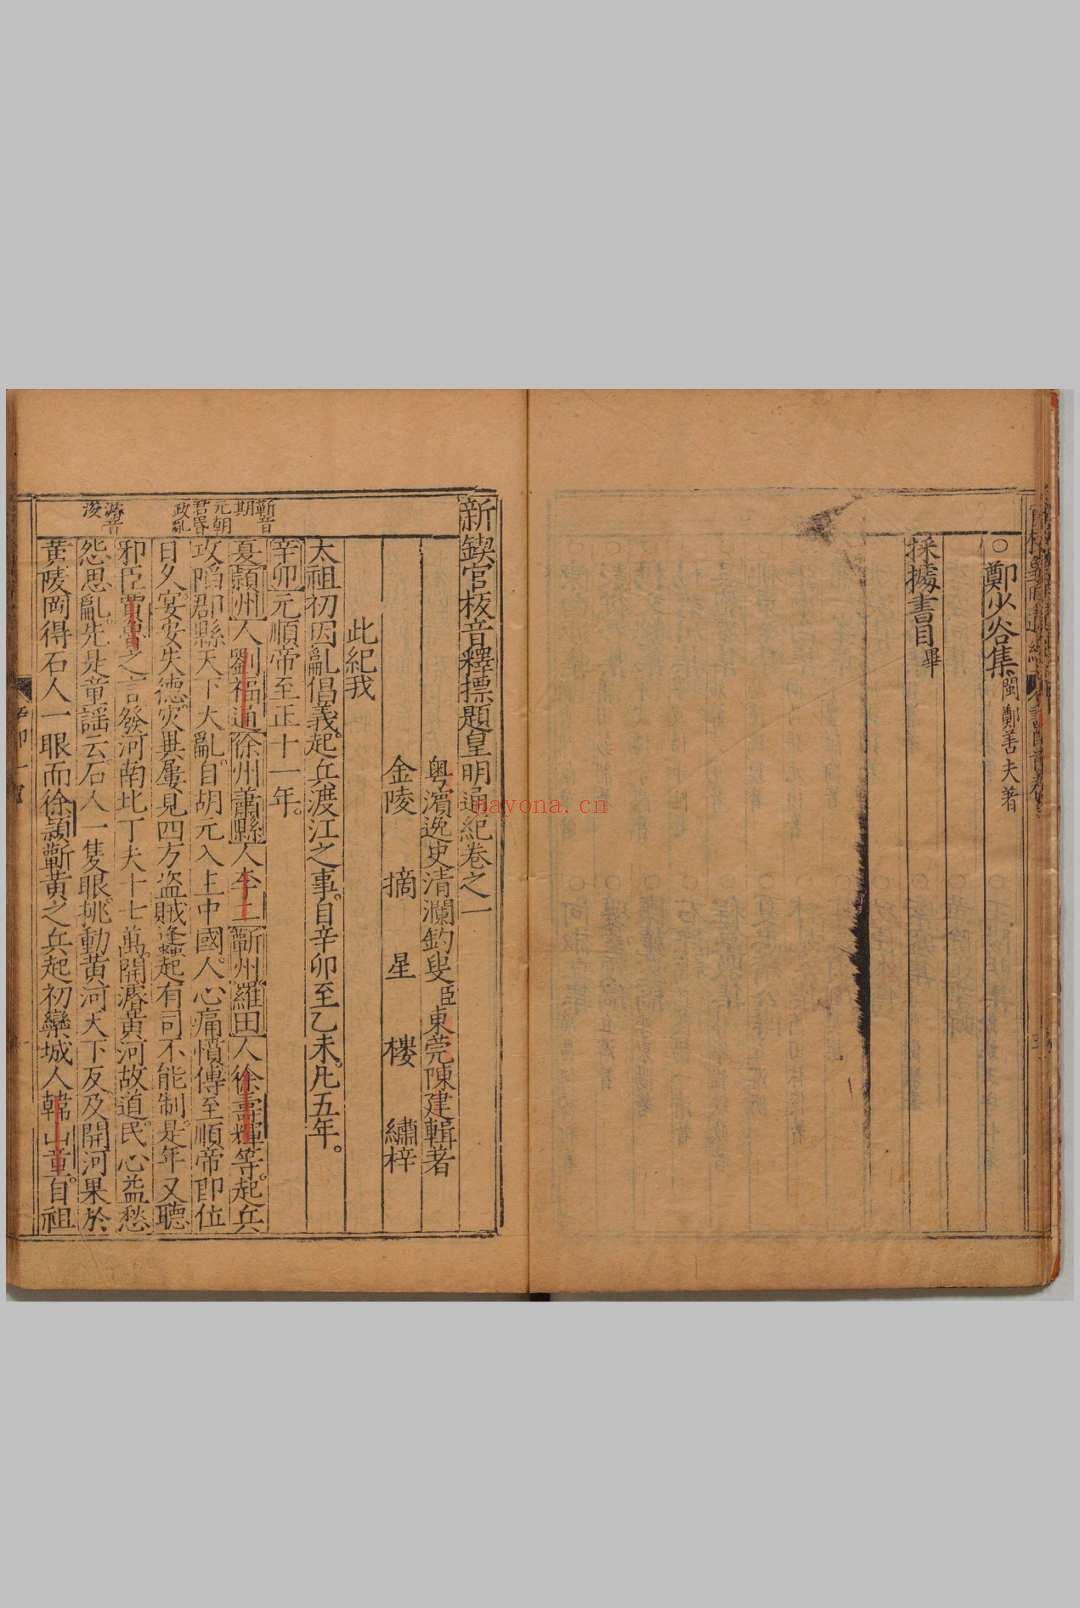 ○鄭少谷集 閩鄭善夫著
採據書目畢
新鍥官板音釋標題皇明通紀卷之一
粵濱逸史清瀾釣叟臣東莞陳建輯著
金陵 摘星樓 繡梓
此紀我
太祖初因亂倡義起兵渡江之事。自辛卯至乙未。凡五年。
辛卯元順帝至正十一年。
蘄音
期
元朝
君昏
政亂
夏潁州人劉福通徐州蕭縣人李二蘄州羅田人徐壽輝等。起兵
攻陷郡縣天下大亂。自胡元入主中國。人心痛憤傳至順帝即位
日久。宴安失德。災異屢見四方盜賊蜂起有司不能制。是年又聽
邪臣賈魯之言發河南北丁夫十七萬。開濬黃河故道。民心益愁
濬音
浚
怨思亂。先是童謠云。石人一隻眼。挑動黃河天下反。及開河果於
黃陵岡得石人一眼而徐潁蘄黃之兵起初欒城人韓山童。自祖
bayona.cn